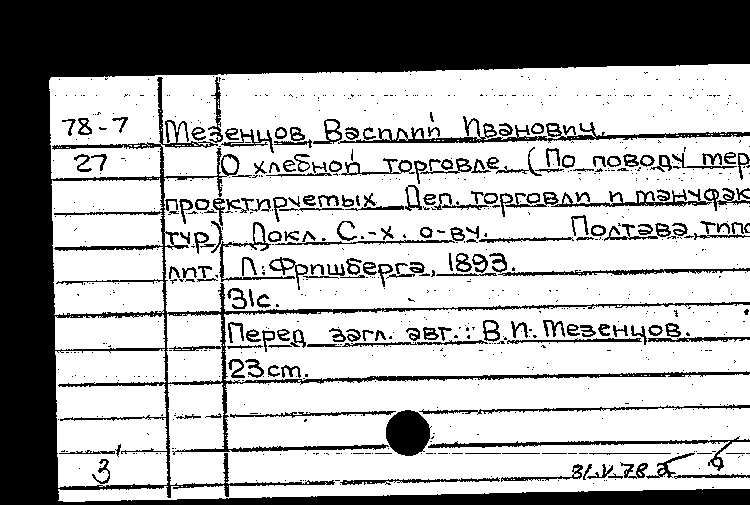 78-7 Мезенцов, Василий Иванович.
27 О хлебной торговле. (По поводу мер
проектируемых Деп. торговли и мануфак
тур) Докл. С.-х. о-ву. Полтава, типо
лит. Л. Фришберга, 1893.
31с.
Перед загл. авт.: В.И. Мезенцов.
23cm.
3 31.V.78 г